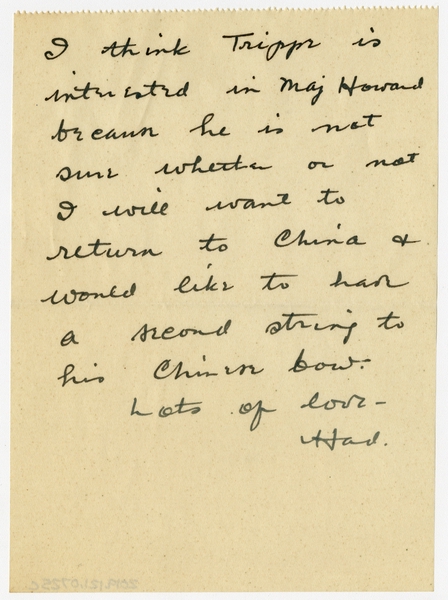 I think Trippe is
interested in Maj Howard
because he is not
sure whether or not
I will want to
return to China &
would like to have
a second string to
his Chinese bow.
Lots of love-
Had.